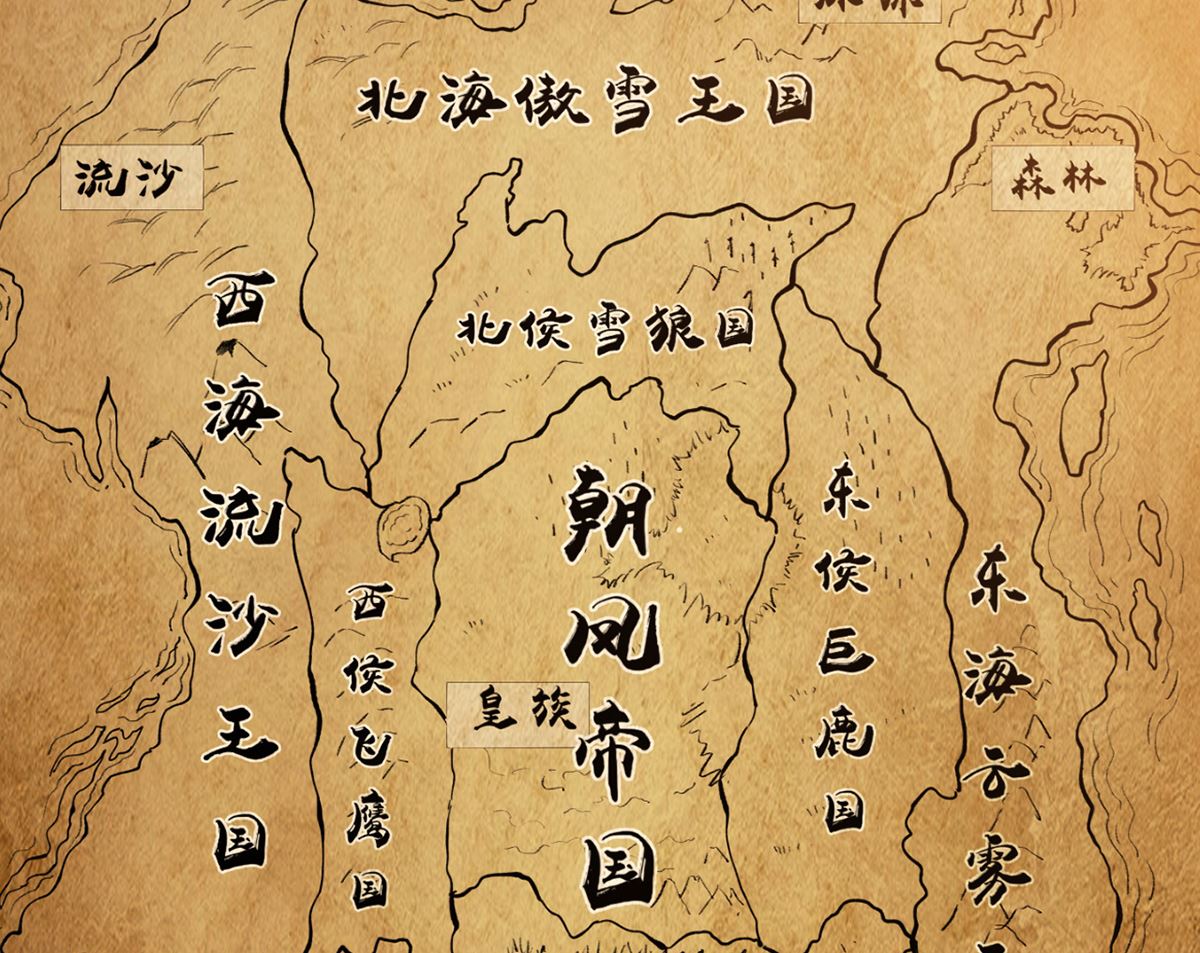 北海傲雪王国
流沙
森林
西海流沙王国
北侯雪狼国
朝凤帝国
东侯巨鹿国
东海云雾
西侯飞鹰国
皇族